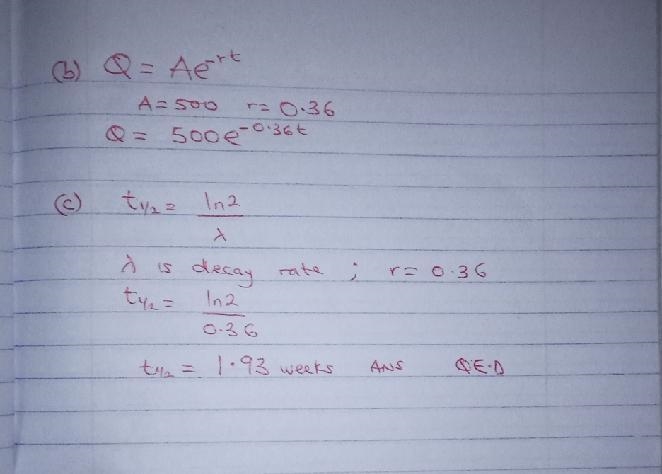 (b) Q = Ae^-rt
A = 500 r = 0.36
Q = 500e^-0.36t
(c) t1/2 = ln2
λ
λ is decay rate ; r = 0.36
t1/2 = ln2
0.36
t1/2 = 1.93 weeks ANS QE.D